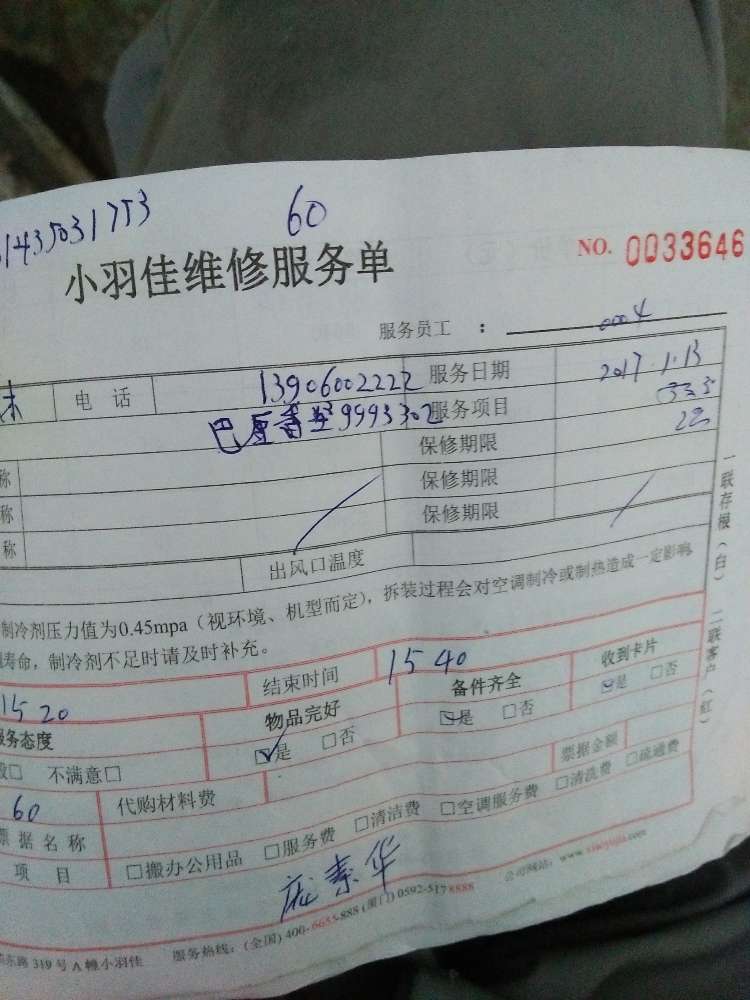 1435031753 60
小羽佳维修服务单 NO. 0033646
服务员工 : 0004
电 话 13906002222 服务日期 2017.1.13
9993302 服务项目
称 保修期限
称 保修期限
称 保修期限
出风口温度
制冷剂压力值为0.45mpa（视环境、机型而定），拆装过程会对空调制冷或制热造成一定影响
寿命，制冷剂不足时请及时补充。
15 20 结束时间 15 40
服务态度 物品完好 备件齐全 收到卡片
般□ 不满意□ ☑是 □否 ☑是 □否 ☑是 □否
60 代购材料费 票据金额
票据名称 □搬办公用品 □服务费 □清洁费 □空调服务费 □清洗费 □疏通费
项 目
庞素华
东路 319 号 A 幢小羽佳 服务热线：(全国) 400-6655-888 (厦门) 0592-5178888 公司网站：www.xiaoyujia.com
一联存根（白） 二联客户（红）